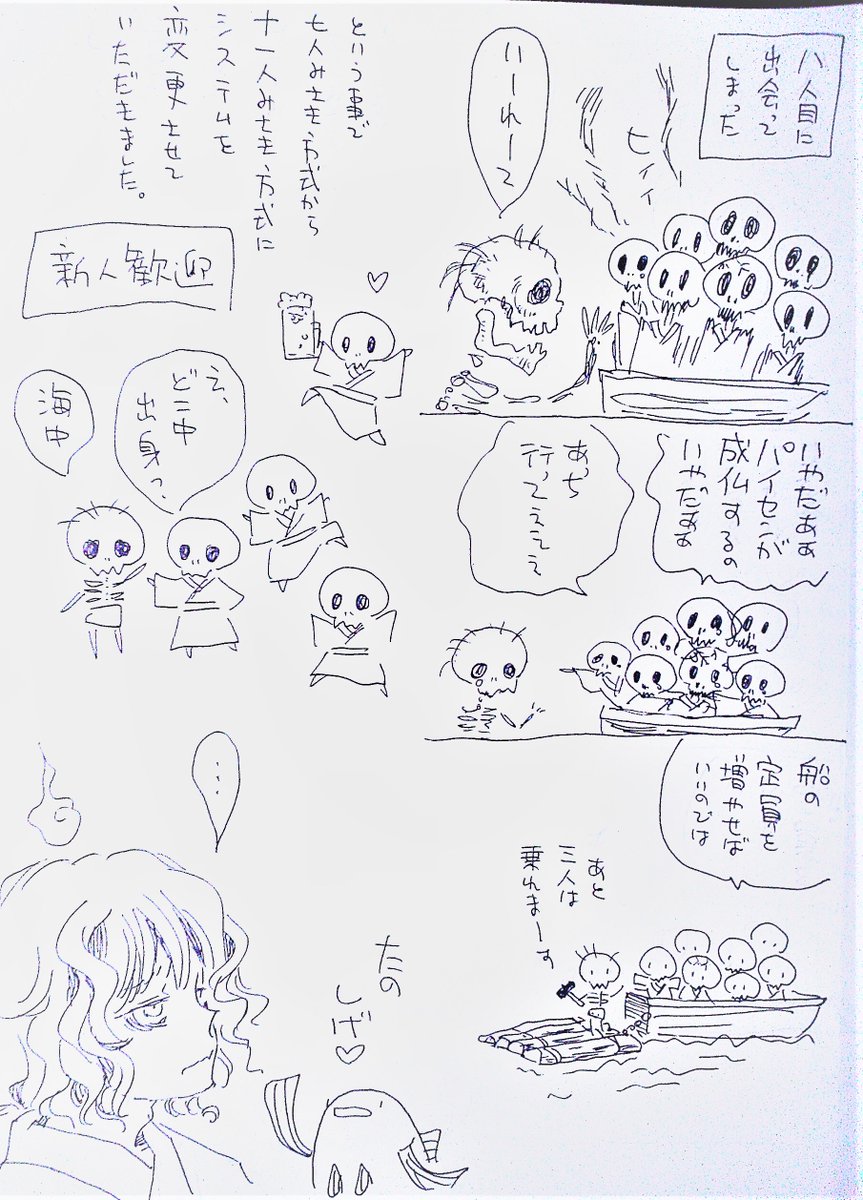 八人目に
出会って
しまった
ヒィィ
いーれーて
いやだぁぁ
パイセンが
成仏するの
いやだぁぁ
あっち
行ってぇぇぇ
船の
定員を
増やせば
いいのでは
あと
三人は
乗れまーす
という事で
七人みさき方式から
十一人みさき方式に
システムを
変更させて
いただきました。
新人歓迎
え、
どこ中
出身っ?
海中
…
たの
しげ♡